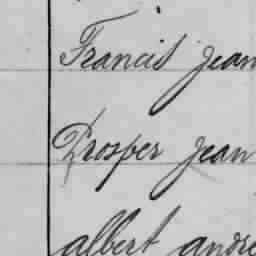 Francis Jean
Prosper Jean
albert andre